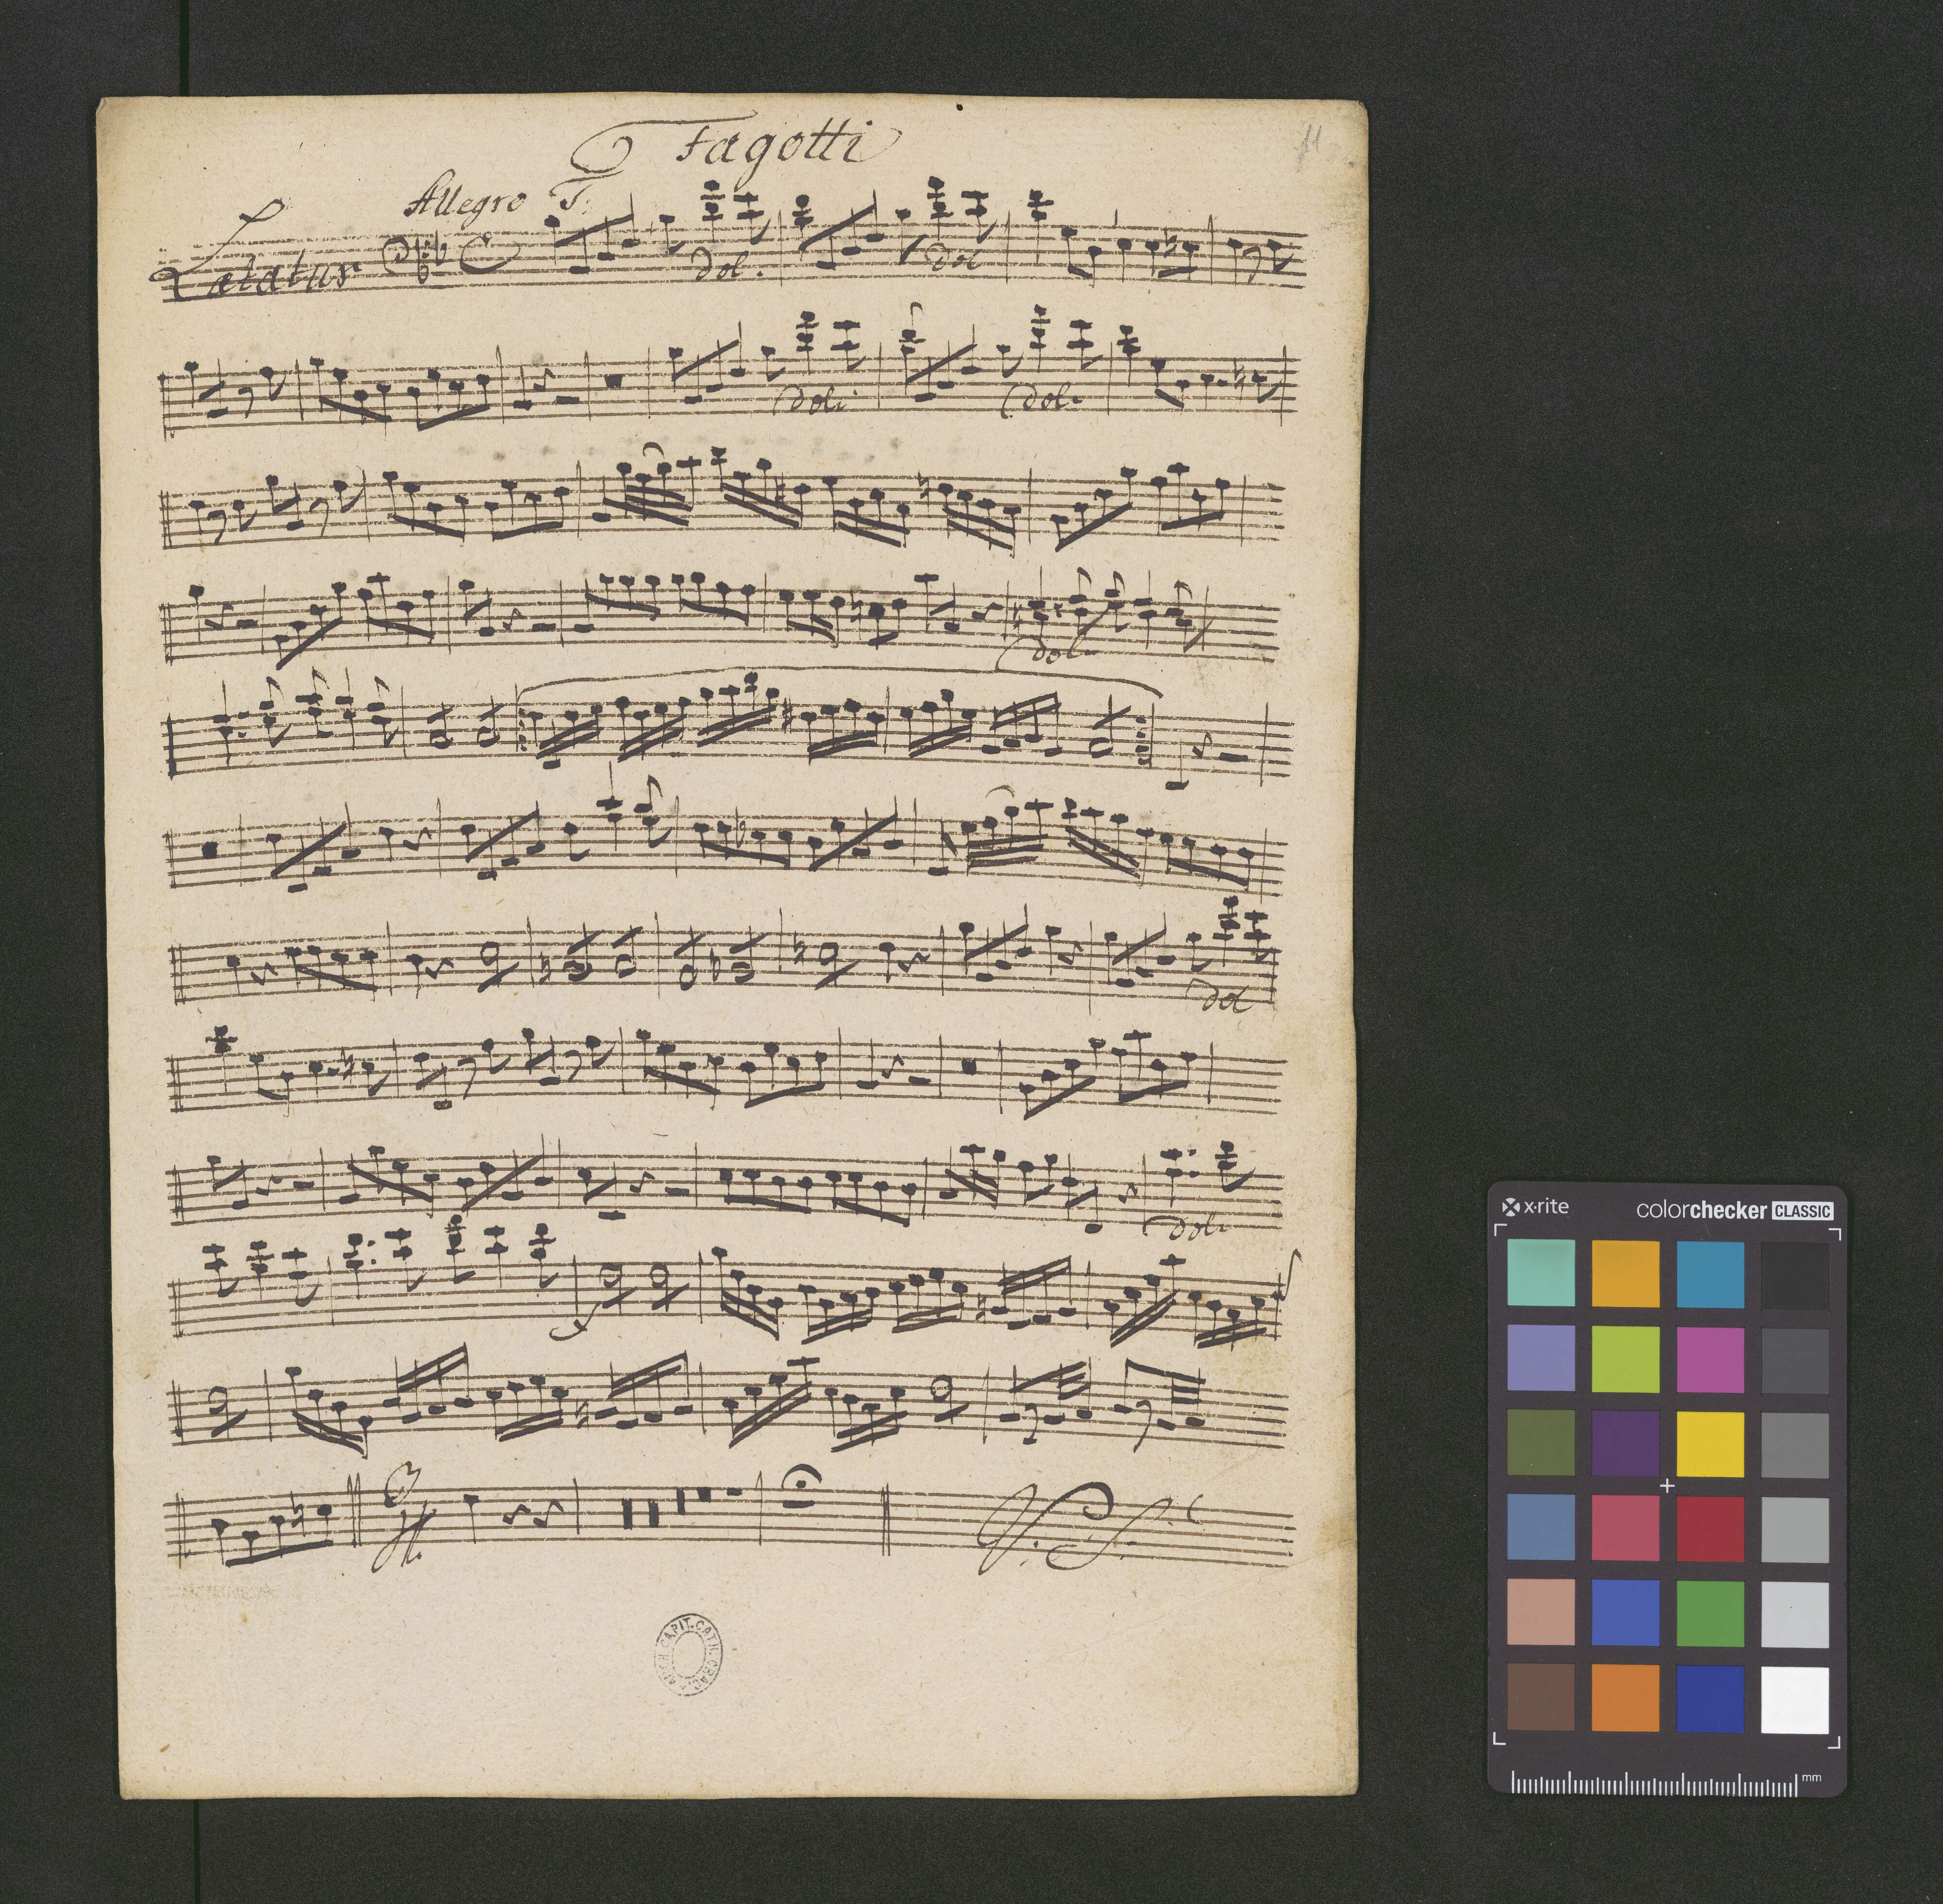 Fagotti
11
Allegro T:
Lætatus
dol. dol
dol: dol:
dol
dol
dol:
V. S.
ARCH. CAPIT. CATH. CRAC.
x·rite colorchecker CLASSIC
mm